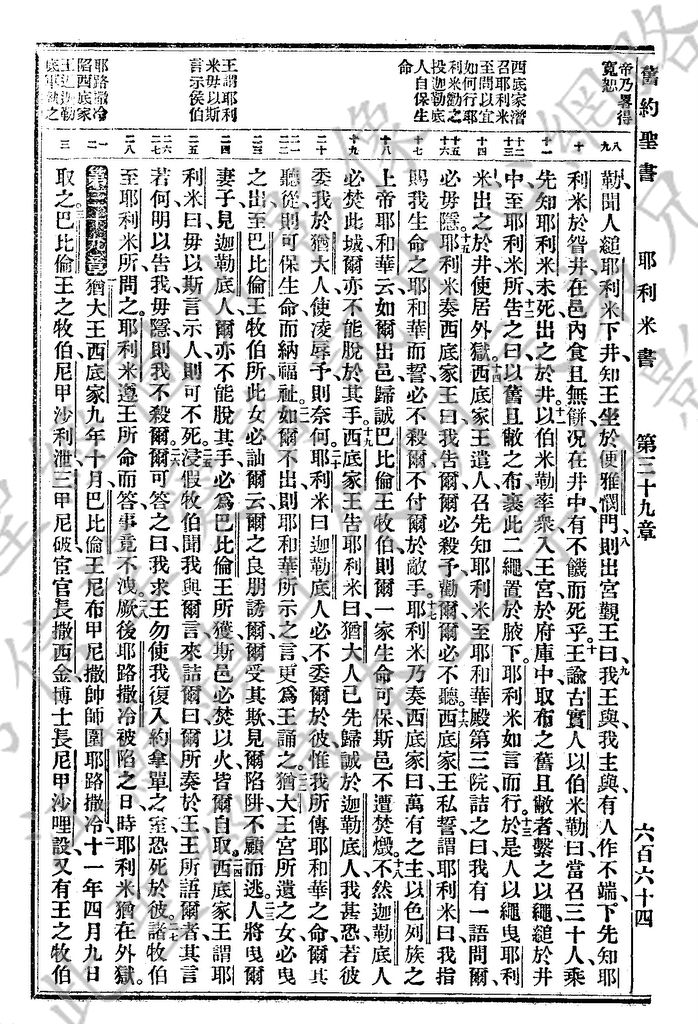 舊約聖書 耶利米書 第三十九章 六百六十四
帝乃畧得
寬恕
西底家潛
召耶利米
至問以宜
如何行耶
利米勸之
投迦勒底
人自保生
命
王謂耶利
米毋以斯
言示侯伯
耶路撒冷
陷西底家
王迦勒
底軍
勒聞人縋耶利米下井知王坐於便雅憫門則出宮觀王曰我王與我主與有人作不端下先知耶
利米於眢井在邑內食且無餅况在井中有不饑而死乎王諭古實人以伯米勒曰當召三十人乘
先知耶利米未死出之於井以伯米勒率衆入王宮於府庫中取布之舊且敝者繫之以繩縋於井
中至耶利米所告之曰以舊且敝之布裹此二繩置於腋下耶利米如言而行於是人以繩曳耶利
米出之於井使居外獄西底家王遣人召先知耶利米至耶和華殿第三院詰之曰我有一語問爾
必毋隱耶利米奏西底家王曰我告爾爾必殺予勸爾爾必不聽西底家王私誓謂耶利米曰我指
賜我生命之耶和華而誓必不殺爾不付爾於敵手耶利米乃奏西底家曰萬有之主以色列族之
上帝耶和華云如爾出邑歸誠巴比倫王牧伯則爾一家生命可保斯邑不遭焚燬不然迦勒底人
必焚此城爾亦不能脫於其手西底家王告耶利米曰猶大人已先歸誠於迦勒底人我甚恐若彼
委我於猶大人使凌辱予則奈何耶利米曰迦勒底人必不委爾於彼惟我所傳耶和華之命爾其
聽從則可保生命而納福祉如爾不出則耶和華所示之言更爲王誦之猶大王宮所遺之女必曳
之出至巴比倫王牧伯所此女必訕爾云爾之良朋誘爾爾受其欺見爾陷阱不顧而逃人將曳爾
妻子見迦勒底人爾亦不能脫其手必爲巴比倫王所獲斯邑必焚以火皆爾自取西底家王謂耶
利米曰毋以斯言示人則可不死浸假牧伯聞我與爾言來詰爾曰爾所奏於王王所語爾者其言
若何明以告我毋隱則我不殺爾爾可答之曰我求王勿使我復入約拿單之室恐死於彼諸牧伯
至耶利米所問之耶利米遵王所命而答事竟不洩厥後耶路撒冷被陷之日時耶利米猶在外獄
第三十九章 猶大王西底家九年十月巴比倫王尼布甲尼撒帥師圍耶路撒冷十一年四月九日
取之巴比倫王之牧伯尼甲沙利泄三甲尼破宦官長撒西金博士長尼甲沙哩設又有王之牧伯